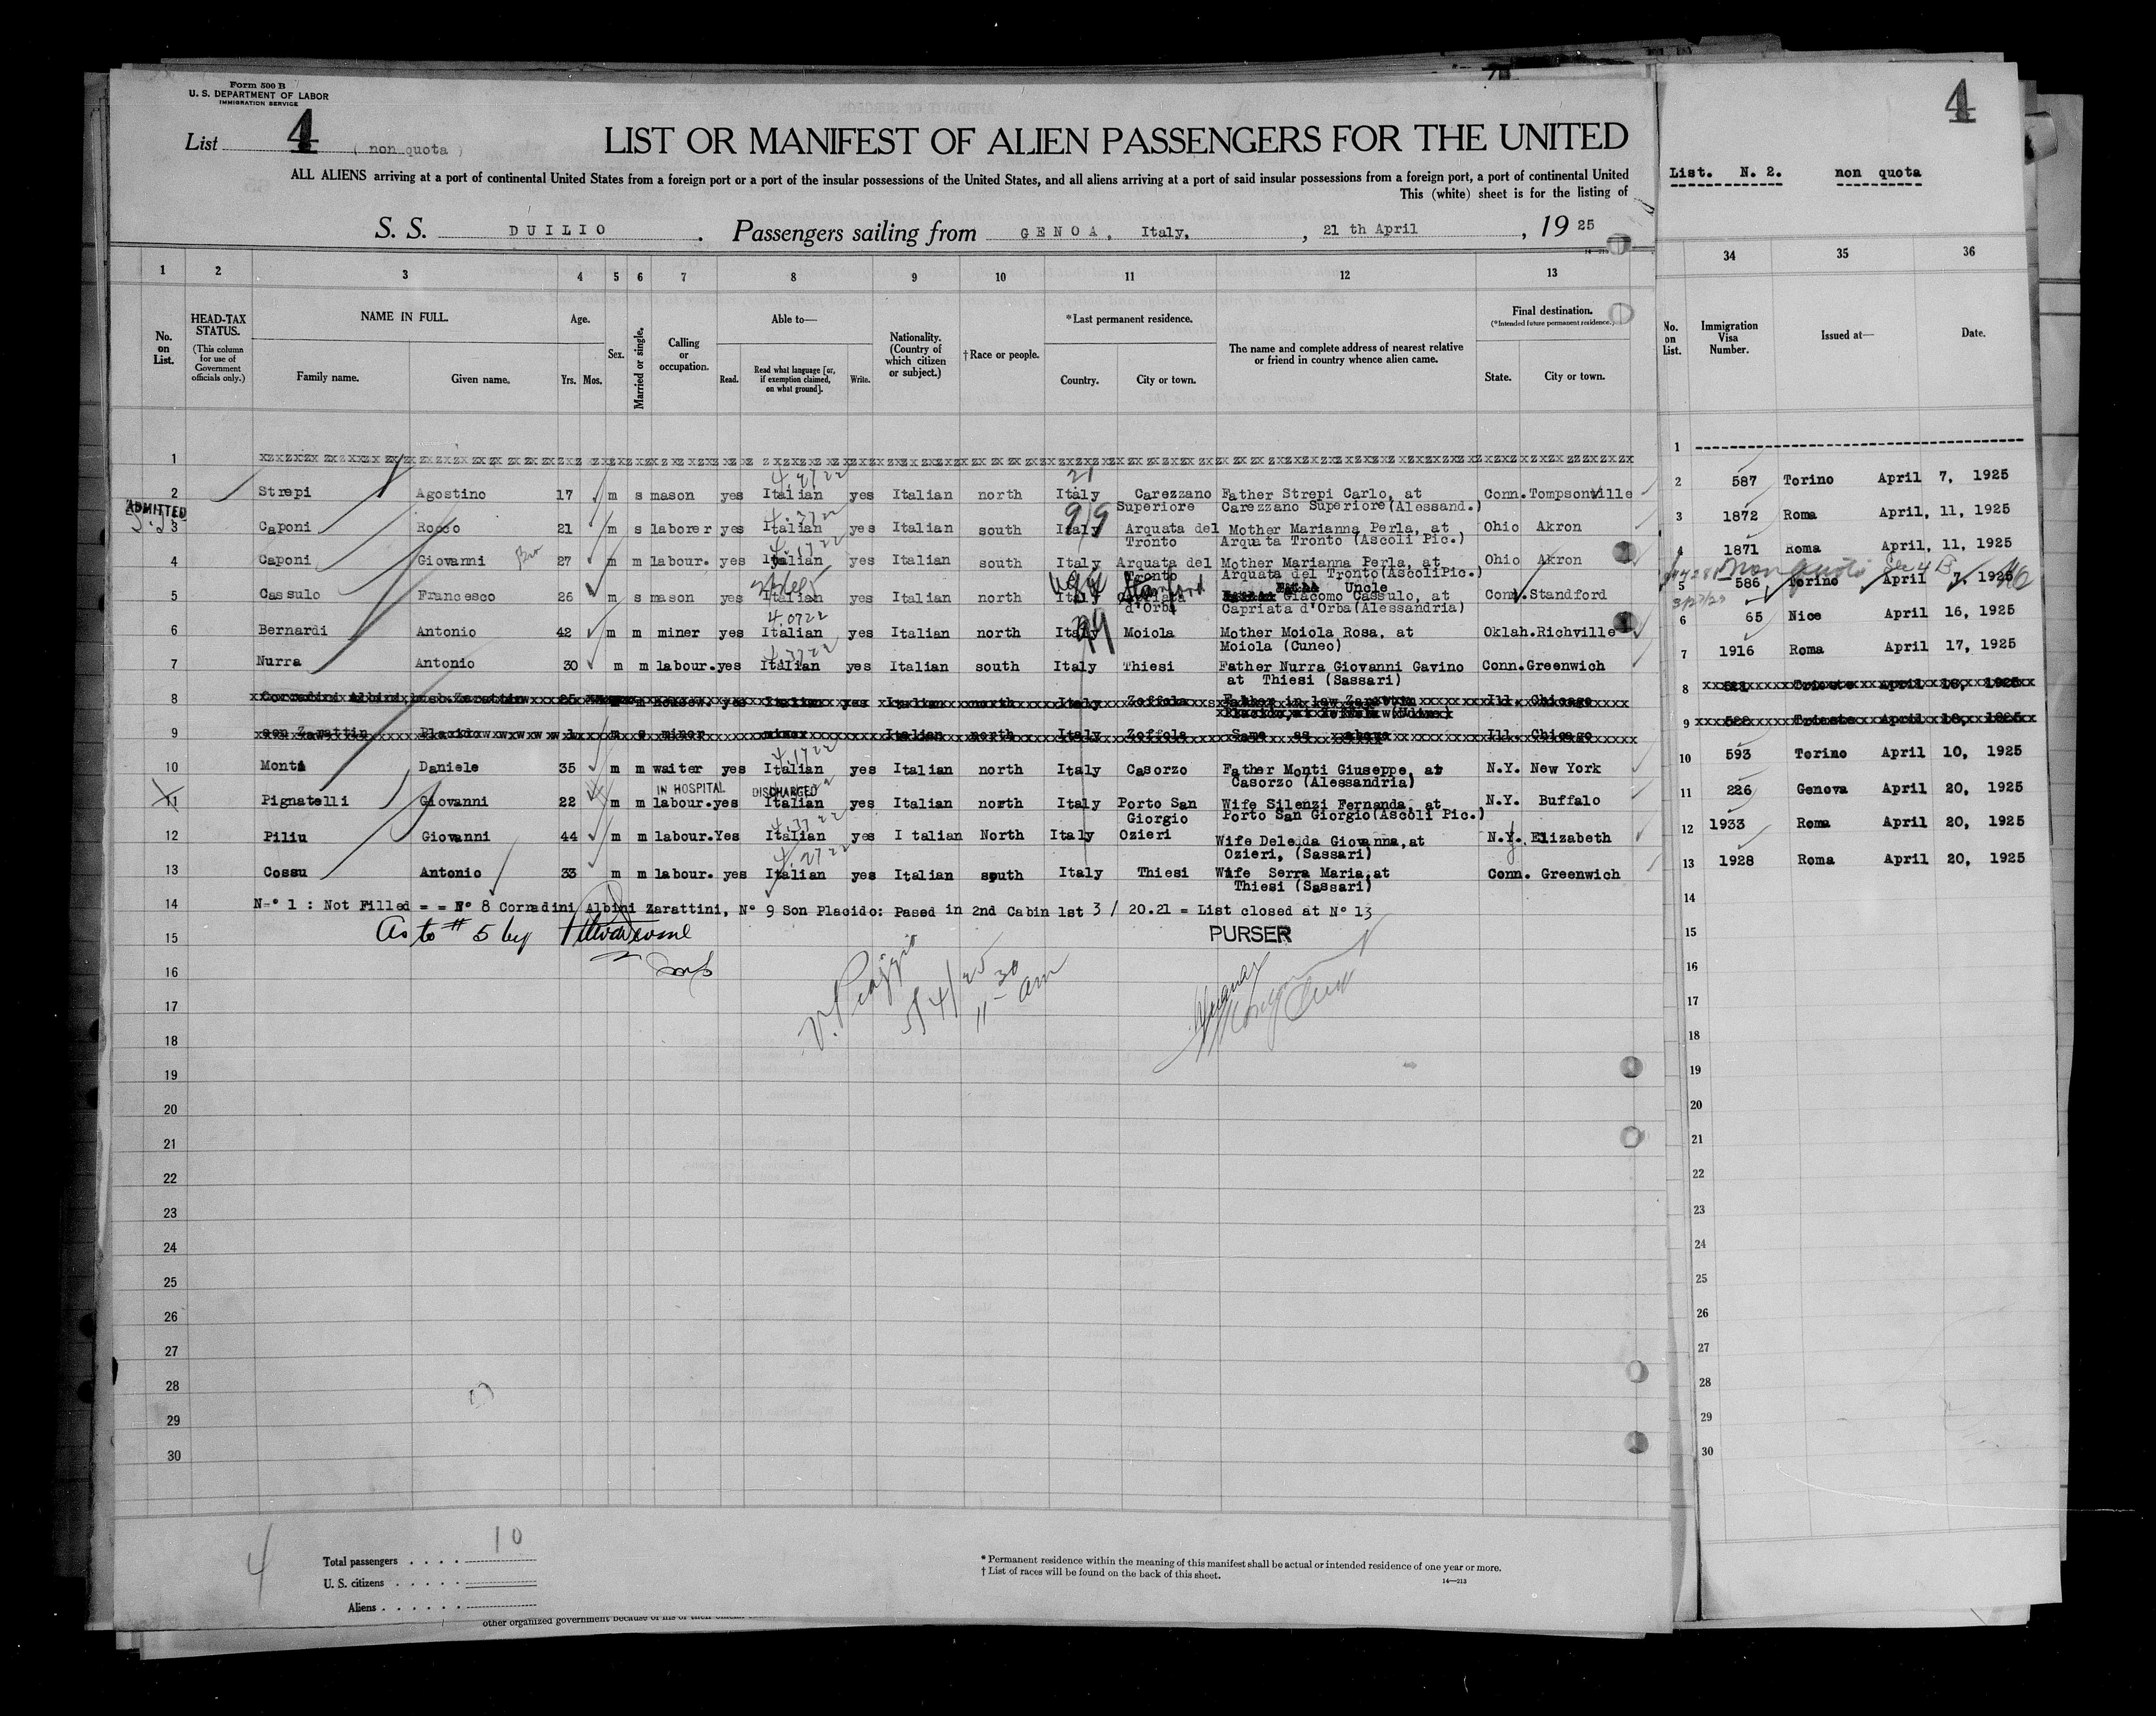 Form 500 B
U. S. DEPARTMENT OF LABOR
IMMIGRATION SERVICE
List 4 ( non quota )
LIST OR MANIFEST OF ALIEN PASSENGERS FOR THE UNITED
ALL ALIENS arriving at a port of continental United States from a foreign port or a port of the insular possessions of the United States, and all aliens arriving at a port of said insular possessions from a foreign port, a port of continental United
This (white) sheet is for the listing of
S. S. DUILIO . Passengers sailing from GENOA, Italy, , 21 th April , 19 25
14—213
1 2 3 4 5 6 7 8 9 10 11 12 13
No. on List.
HEAD-TAX STATUS. (This column for use of Government officials only.)
NAME IN FULL.
Family name. Given name.
Age. Yrs. Mos.
Sex.
Married or single.
Calling or occupation.
Able to—
Read. Read what language [or, if exemption claimed, on what ground]. Write.
Nationality. (Country of which citizen or subject.)
†Race or people.
*Last permanent residence.
Country. City or town.
The name and complete address of nearest relative or friend in country whence alien came.
Final destination. (*Intended future permanent residence.)
State. City or town.
1
2 Strepi Agostino 17 m s mason yes Italian yes Italian north Italy Carezzano Father Strepi Carlo, at Conn. Tompsonville
Superiore Carezzano Superiore(Alessand.)
ADMITTED
3 Caponi Rocco 21 m s laborer yes Italian yes Italian south Italy Arquata del Mother Marianna Perla, at Ohio Akron
Tronto Arquata Tronto (Ascoli Pic.)
4 Caponi Giovanni Bro 27 m m labour. yes Italian yes Italian south Italy Arquata del Mother Marianna Perla, at Ohio Akron
Tronto Arquata del Tronto(AscoliPic.)
5 Cassulo Francesco 26 m s mason yes Italian yes Italian north Italy Capriata Uncle Giacomo Cassulo, at Conn. Standford
d'Orba Capriata d'Orba(Alessandria)
6 Bernardi Antonio 42 m m miner yes Italian yes Italian north Italy Moiola Mother Moiola Rosa, at Oklah. Richville
Moiola (Cuneo)
7 Nurra Antonio 30 m m labour. yes Italian yes Italian south Italy Thiesi Father Nurra Giovanni Gavino Conn. Greenwich
at Thiesi (Sassari)
8 Corradini Albini 25 m yes Italian yes Italian north Italy Zoffola Father in law Ill. Chicago
9 son Zarattin Placido 1 m s minor minor Italian north Italy Zoffola Same as above Ill. Chicago
10 Monti Daniele 35 m m waiter yes Italian yes Italian north Italy Casorzo Father Monti Giuseppe, at N.Y. New York
Casorzo (Alessandria)
IN HOSPITAL DISCHARGED
11 Pignatelli Giovanni 22 m m labour. yes Italian yes Italian north Italy Porto San Wife Silenzi Fernanda, at N.Y. Buffalo
Giorgio Porto San Giorgio(Ascoli Pic.)
12 Piliu Giovanni 44 m m labour. Yes Italian yes I talian North Italy Ozieri Wife Deledda Giovanna,at N.Y. Elizabeth
Ozieri, (Sassari)
13 Cossu Antonio 33 m m labour. yes Italian yes Italian south Italy Thiesi Wife Serra Maria,at Conn. Greenwich
Thiesi (Sassari)
14 N-° 1 : Not Filled = = N° 8 Corradini Albini Zarattini, N° 9 Son Placido: Pased in 2nd Cabin 1st 3 / 20.21 = List closed at N° 13
15 As to # 5 by PURSER
16
17
18
19
20
21
22
23
24
25
26
27
28
29
30
4
Total passengers . . . . 10
U. S. citizens . . . . .
Aliens . . . . . .
* Permanent residence within the meaning of this manifest shall be actual or intended residence of one year or more.
† List of races will be found on the back of this sheet.
14—213
4
List. N. 2. non quota
34 35 36
No. on List. Immigration Visa Number. Issued at— Date.
1
2 587 Torino April 7, 1925
3 1872 Roma April, 11, 1925
4 1871 Roma April, 11, 1925
non quota Sec 4 B
5 586 Torino April 7, 1925
6 65 Nice April 16, 1925
7 1916 Roma April 17, 1925
8 521 Trieste April 18, 1925
9 522 Trieste April 18, 1925
10 593 Torino April 10, 1925
11 226 Genova April 20, 1925
12 1933 Roma April 20, 1925
13 1928 Roma April 20, 1925
14
15
16
17
18
19
20
21
22
23
24
25
26
27
28
29
30